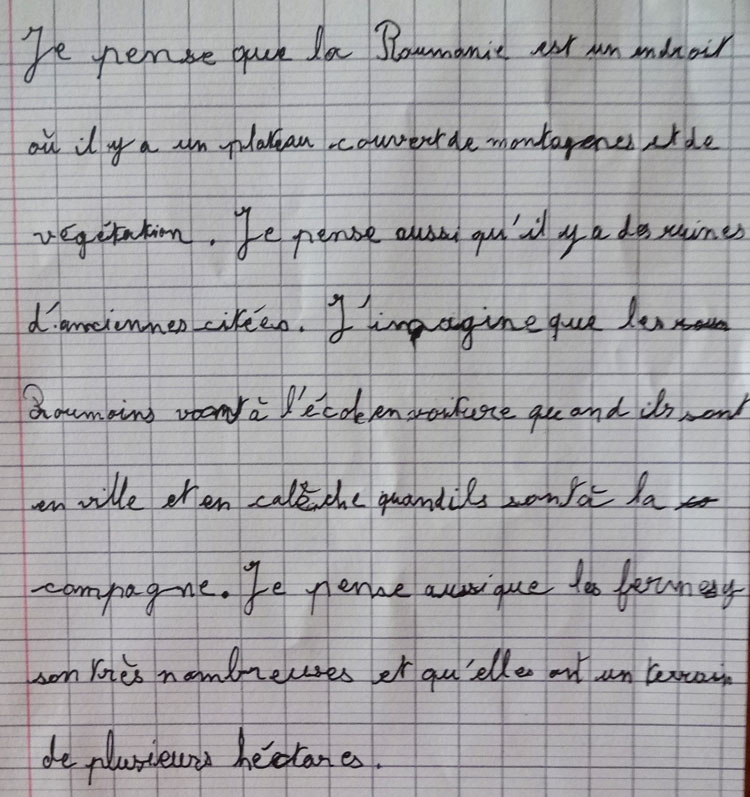 Je pense que la Roumanie est un endroit
où il y a un plateau couvert de montagenes et de
végétation. Je pense aussi qu'il y a des ruines
d'anciennes citées. J'imagine que les
Roumains vont à l'école en voiture quand ils sont
en ville et en calèche quand ils sont à la
campagne. Je pense aussi que les fermes y
son très nombreuses et qu'elles ont un terrain
de plusieurs héctares.